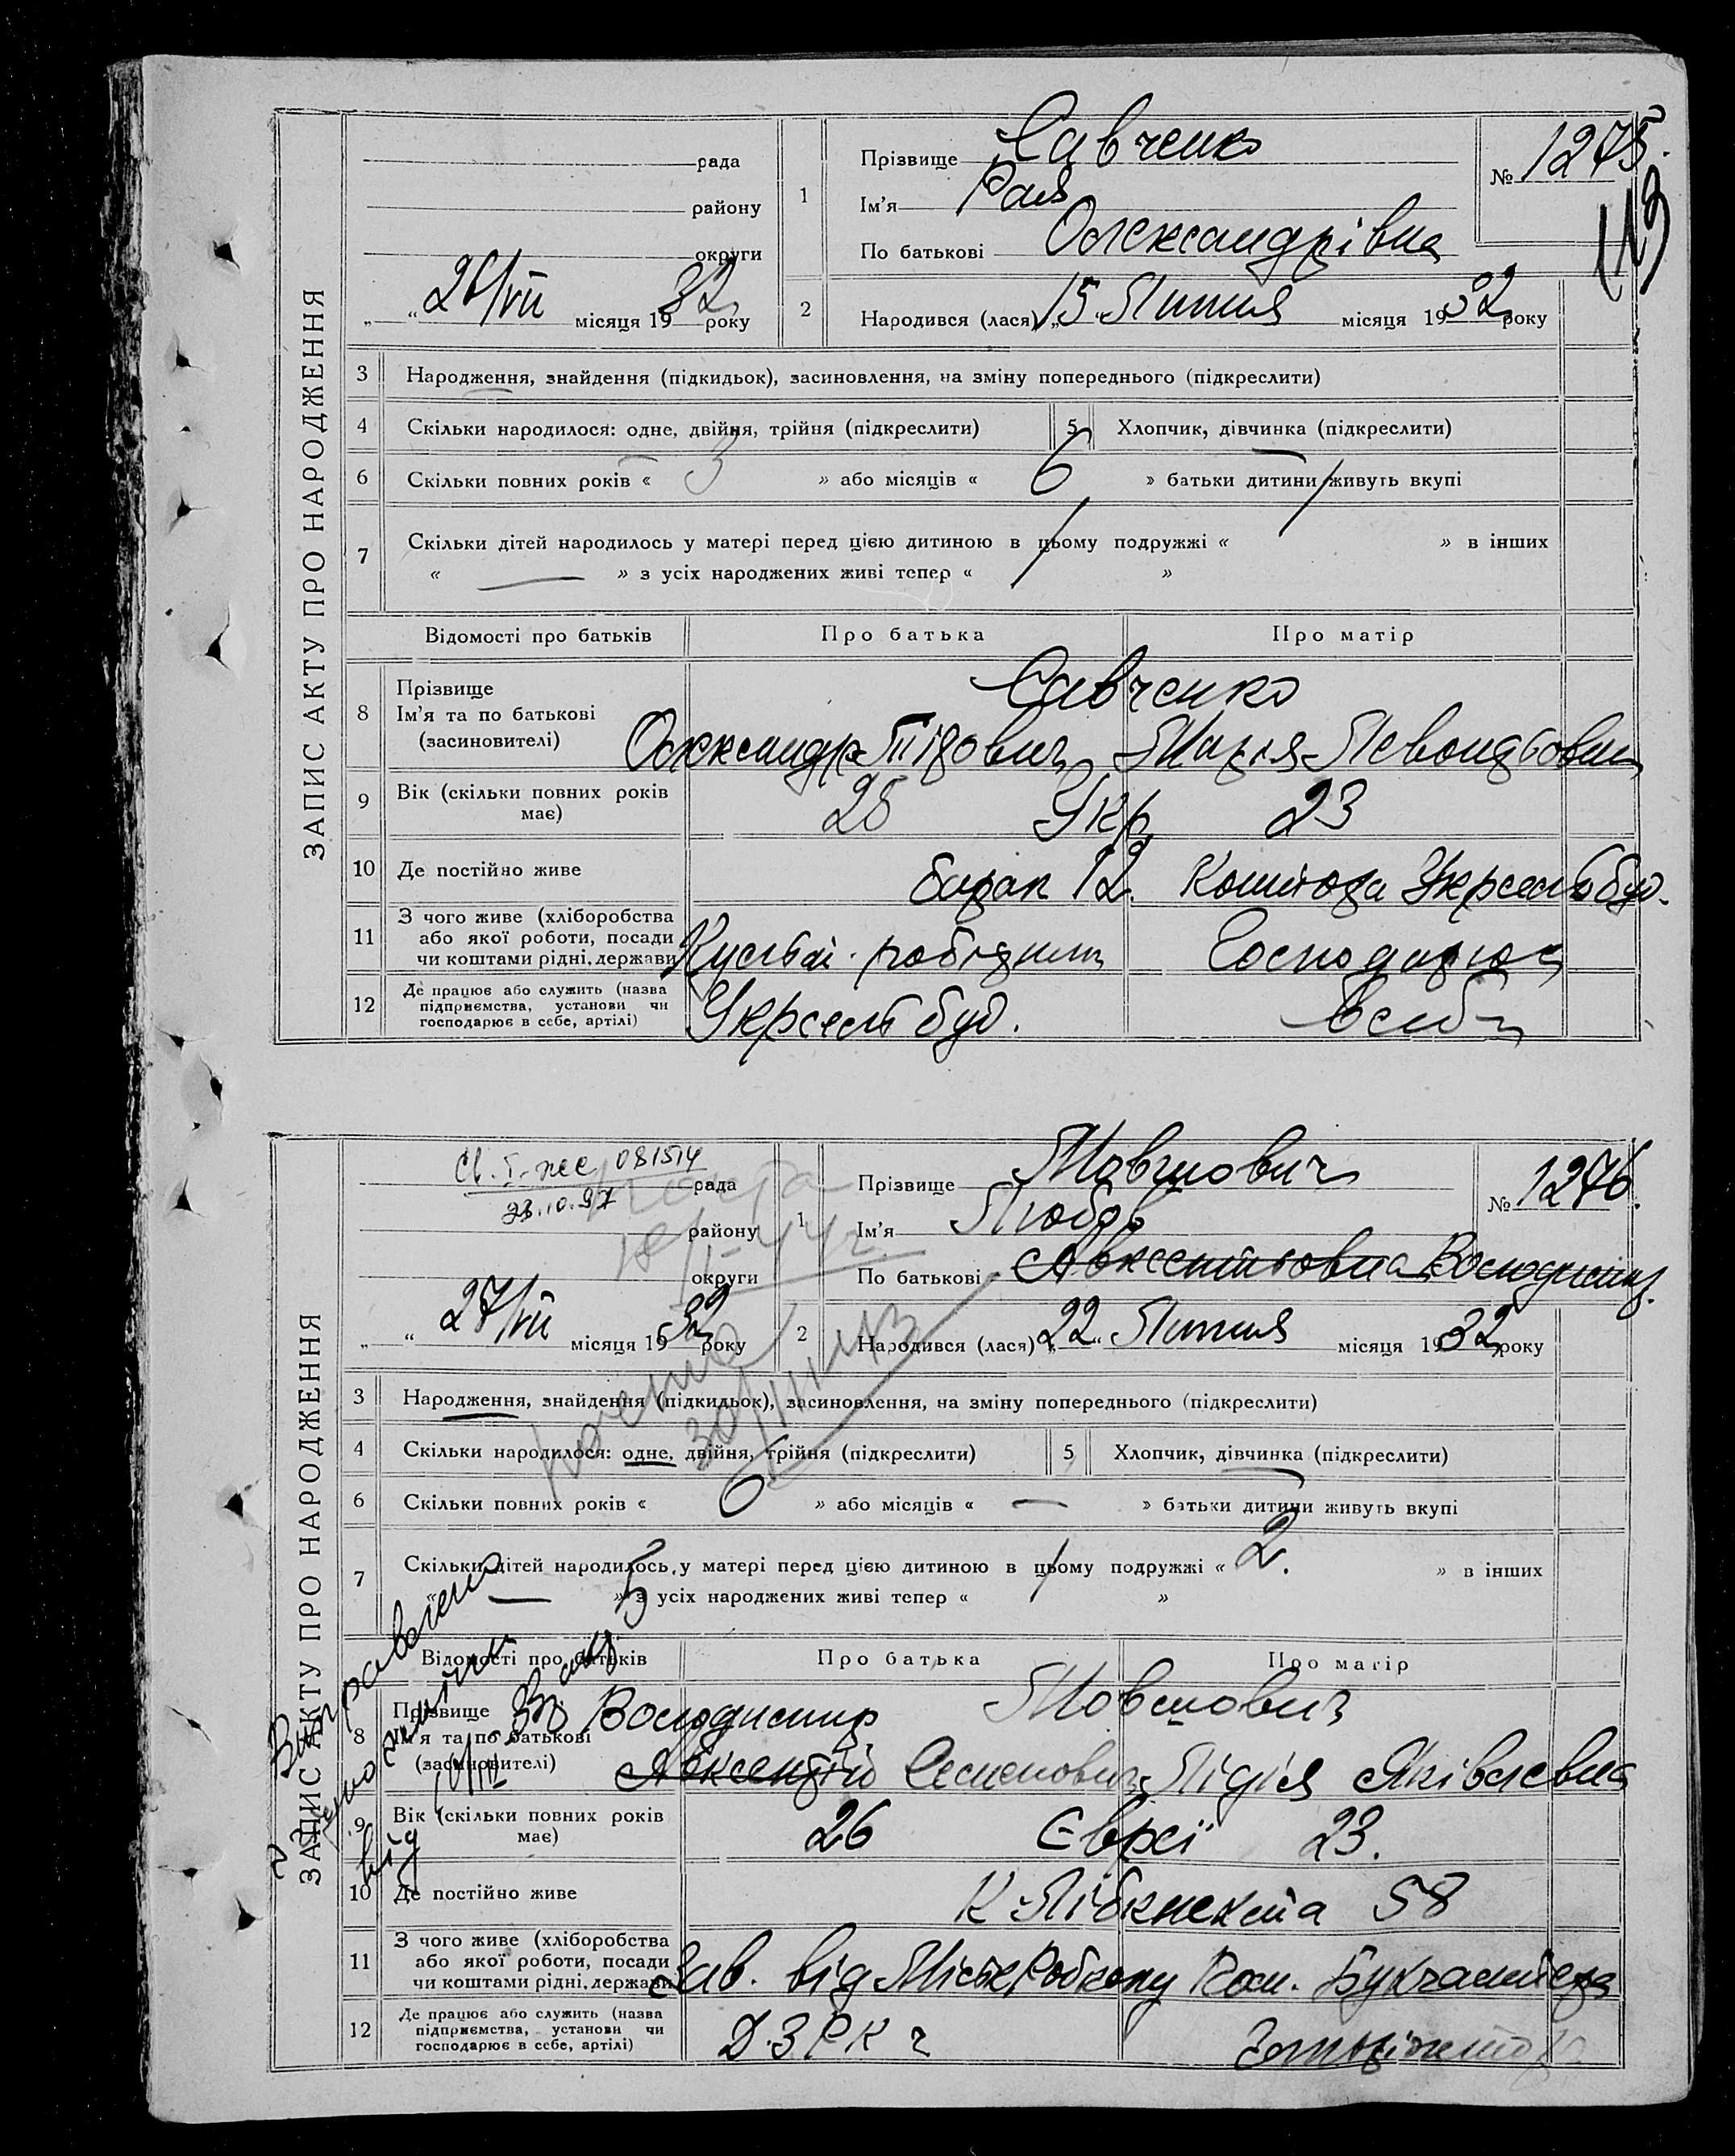 ЗАПИС АКТУ ПРО НАРОДЖЕННЯ
рада
району
округи
„ “ 26/VII місяця 1932 року
1
Прізвище Савченко
Ім'я Рая
По батькові Олександрівна
№ 1275.
2
Народився (лася) „15“ Липня місяця 1932 року
3 Народження, знайдення (підкидьок), засиновлення, на зміну попереднього (підкреслити)
4 Скільки народилося: одне, двійня, трійня (підкреслити)
5 Хлопчик, дівчинка (підкреслити)
6 Скільки повних років « 3 » або місяців « 6 » батьки дитини живуть вкупі
7 Скільки дітей народилось у матері перед цією дитиною в цьому подружжі « » в інших
« — » з усіх народжених живі тепер « »
Відомості про батьків
Про батька
Про матір
8 Прізвище
Ім'я та по батькові
(засиновителі)
Савченко
Олександр Тітович Марія
9 Вік (скільки повних років має)
Укр. 23
10 Де постійно живе
барак 12.
11 З чого живе (хліборобства
або якої роботи, посади
чи коштами рідні, держави
Господарює
12 Де працює або служить (назва
підприємства, установи чи
господарює в себе, артілі)
Укрсельбуд.
в себе
ЗАПИС АКТУ ПРО НАРОДЖЕННЯ
081514
23.10.97
рада
району
округи
„ “ 27/VII місяця 1932 року
1
Прізвище Мовшович
Ім'я Любов
По батькові Авксентіовна Володимир.
№ 1276.
2
Народився (лася) „22“ Липня місяця 1932 року
3 Народження, знайдення (підкидьок), засиновлення, на зміну попереднього (підкреслити)
4 Скільки народилося: одне, двійня, трійня (підкреслити)
5 Хлопчик, дівчинка (підкреслити)
6 Скільки повних років « 6 » або місяців « — » батьки дитини живуть вкупі
7 Скільки дітей народилось у матері перед цією дитиною в цьому подружжі « 2. » в інших
« — » з усіх народжених живі тепер « »
Виправлено
Відомості про батьків
Про батька
Про матір
8 Прізвище
Ім'я та по батькові
(засиновителі)
Володимир Мовшович
Авксентій Семенович Лідія Яківлевна
від
9 Вік (скільки повних років має)
26 Євреї 23.
10 Де постійно живе
К Лібкнехта 58
11 З чого живе (хліборобства
або якої роботи, посади
чи коштами рідні, держави
Зав. від Міськ Робкопу
12 Де працює або служить (назва
підприємства, установи чи
господарює в себе, артілі)
Д.З.Р.К